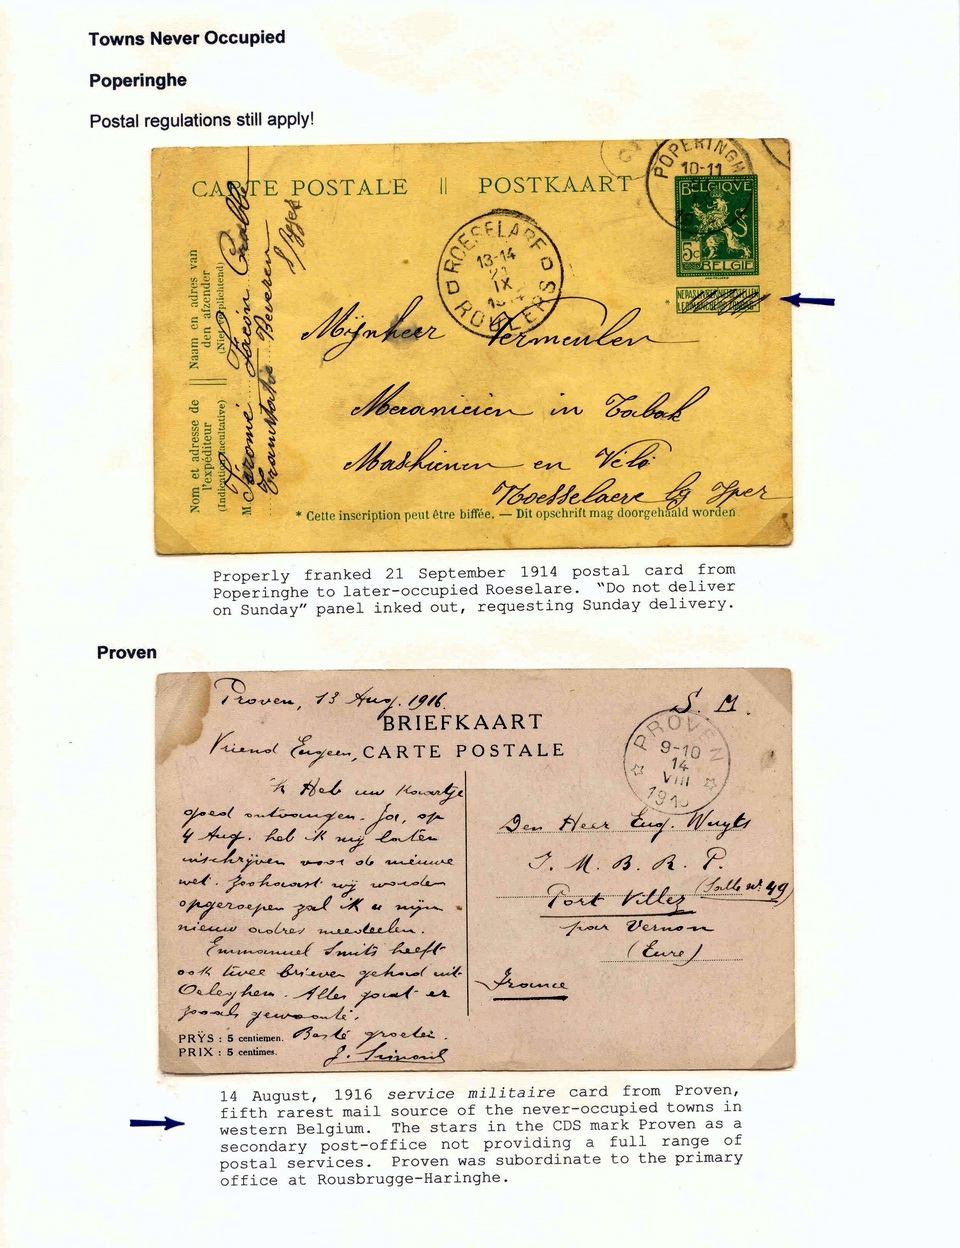 Towns Never Occupied
Poperinghe
Postal regulations still apply!
CARTE POSTALE || POSTKAART
POPERINGH
10-11
BELGIQUE
5c
BELGIE
NE PAS LIVRER LE DIMANCHE
ROESELARE
13-14
21
IX
1914
ROULERS
Naam en adres van
den afzender
(Niet verplichtend)
Nom et adresse de
l'expéditeur
(Indication facultative)
M
Beveren
Mijnheer Vermeulen
Mecanicien in Tabak
Maskienen en Velo
Roesselaere by Yper
* Cette inscription peut être biffée. — Dit opschrift mag doorgehaald worden
Properly franked 21 September 1914 postal card from
Poperinghe to later-occupied Roeselare. "Do not deliver
on Sunday" panel inked out, requesting Sunday delivery.
Proven
Proven, 13 Aug. 1916.
S. M.
BRIEFKAART
CARTE POSTALE
PROVEN
9-10
14
VIII
191
Vriend Eugeen,
'k Heb uw kaartje
goed ontvangen. Ja, op
4 Aug. heb ik mij laten
inschrijven voor de nieuwe
wet. Zoohaast wij worden
opgeroepen zal ik u mijn
nieuw adres meedeelen.
Emmanuel Smits heeft
ook twee brieven gehad uit
Oeleghem. Alles gaat er
zooals gewoonte.
Beste groeten.
J. Simons
Den Heer Eug. Wuyts
I. M. B. R. P.
(Salle No. 49)
Port Villez
par Vernon
(Eure)
France
PRŸS : 5 centiemen.
PRIX : 5 centimes.
14 August, 1916 service militaire card from Proven,
fifth rarest mail source of the never-occupied towns in
western Belgium. The stars in the CDS mark Proven as a
secondary post-office not providing a full range of
postal services. Proven was subordinate to the primary
office at Rousbrugge-Haringhe.